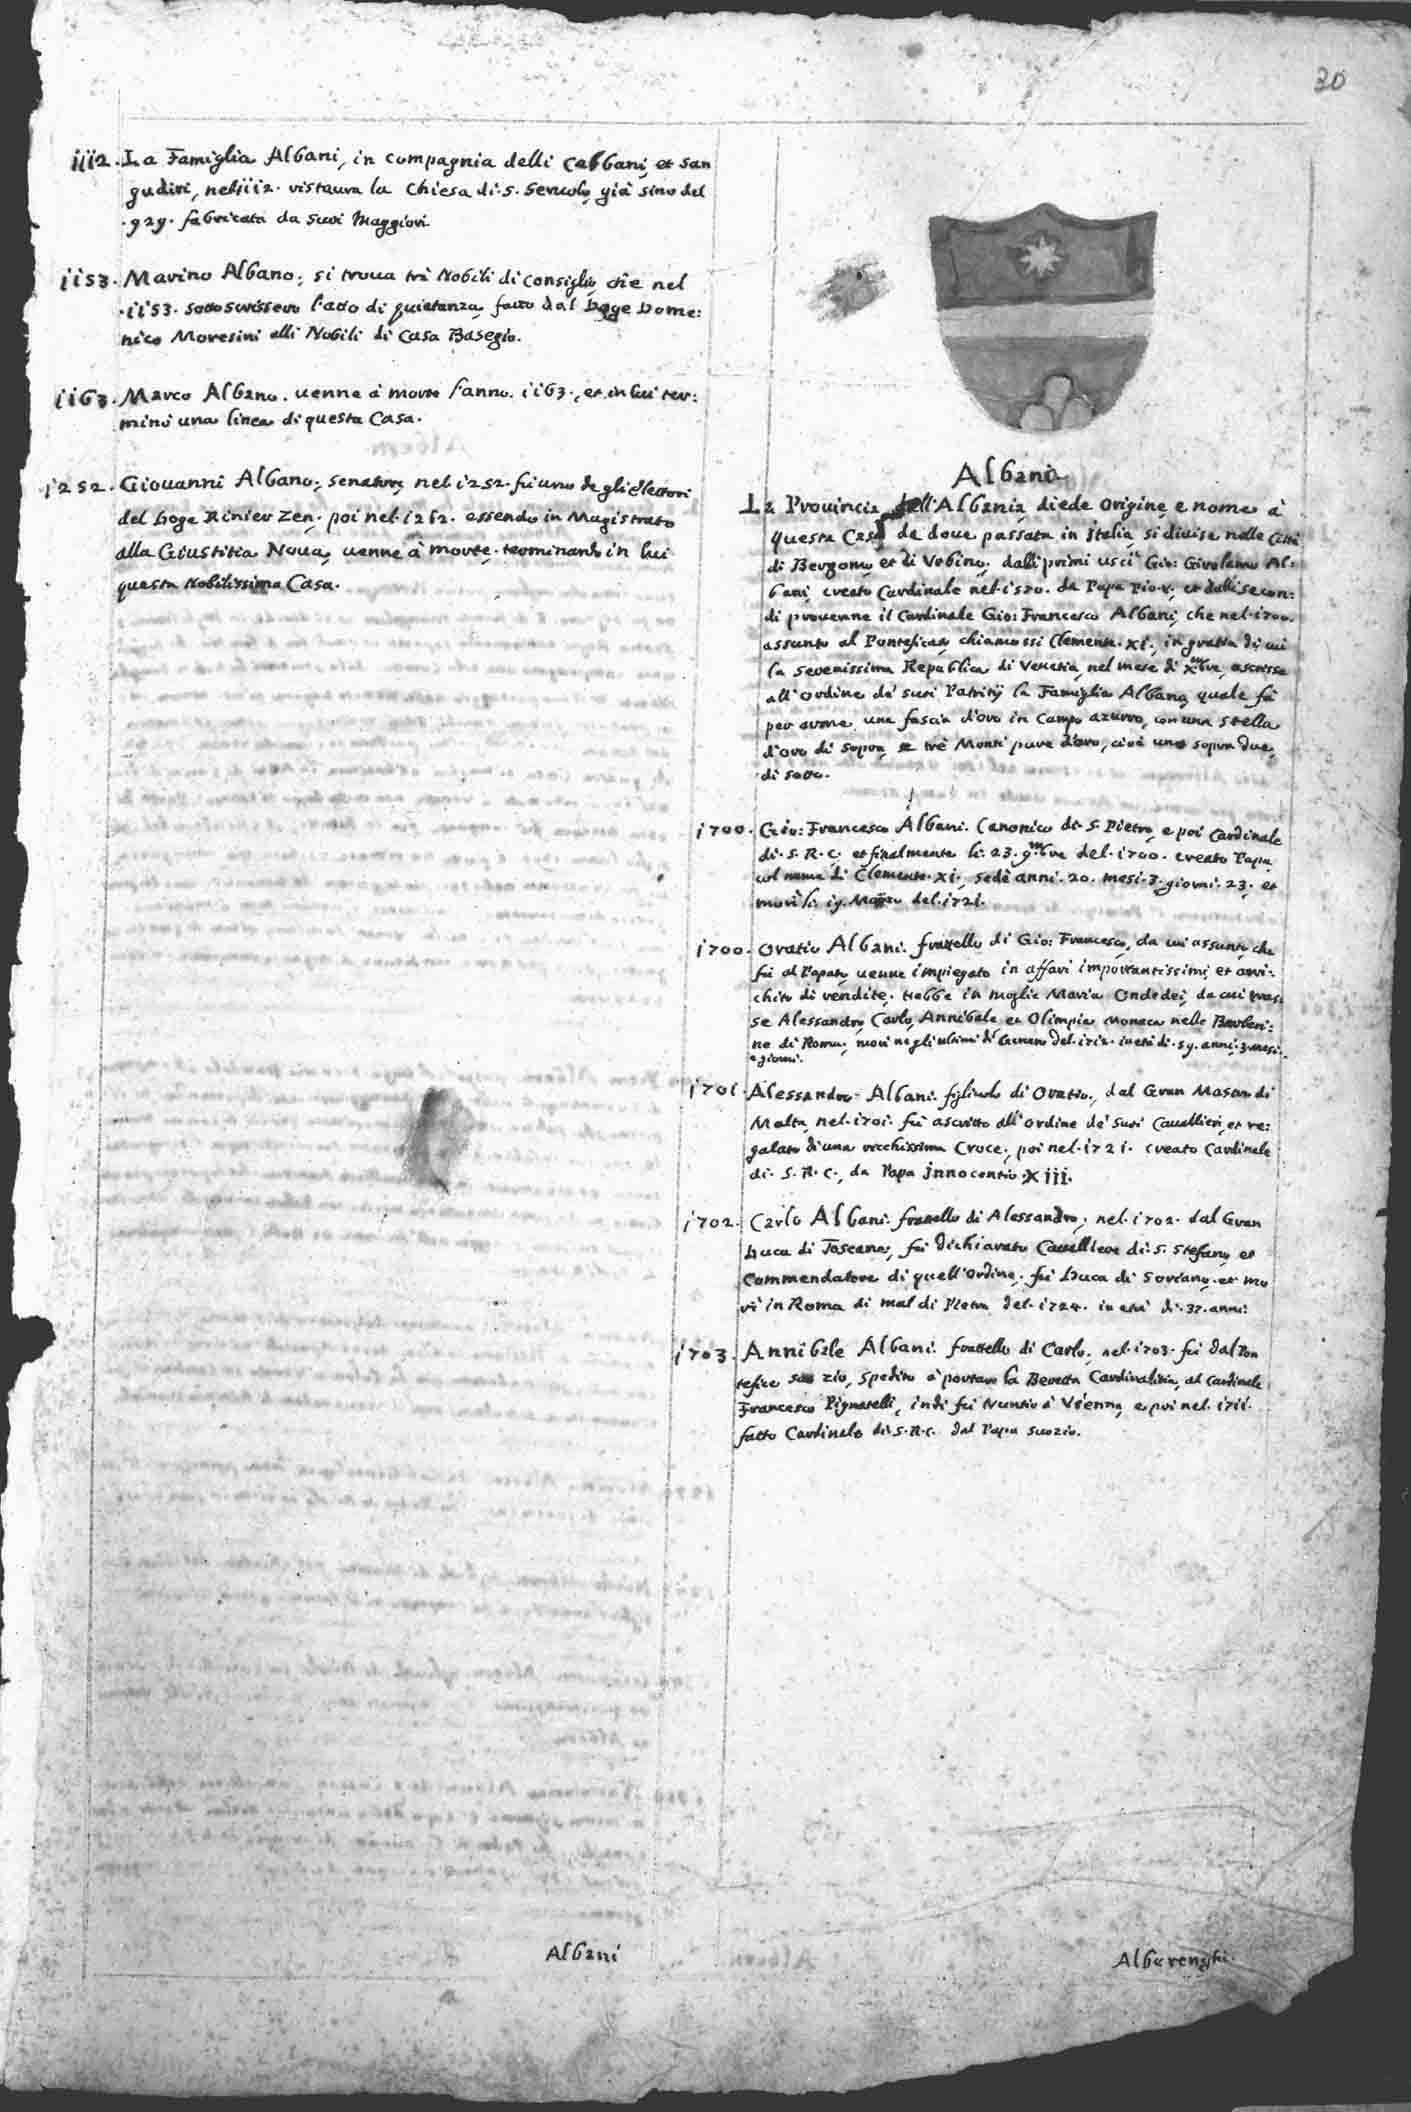 30
1112. La Famiglia Albani, in compagnia delli Cabbani, et San
gudini, nel 1112. ristaura la Chiesa di. S. Seruolo, già sino del
.929. fabricata da suoi Maggiori.
1153. Marino Albano, si troua trà Nobili di consiglio, che nel
.1153. sottoscrissero l'atto di quietanza, fatto dal Doge Dome:
nico Moresini alli Nobili di Casa Basegio.
1163. Marco Albano. uenne à morte l'anno. 1163., et in lui ter:
minò una linea di questa Casa.
1252. Giouanni Albano, senatore, nel. 1252. fù uno degli Elettori
del Doge Rinier Zen. poi nel. 1262. essendo in Magistrato
alla Giustitia Noua, uenne à morte, terminando in lui
questa Nobilissima Casa.
Albani
Albani
La Prouincia dell'Albania diede origine e nome à
questa Casa, de doue passata in Italia, si diuise nelle Città
di Bergomo, et di Vrbino, dalli primi uscì Gio: Girolamo Al:
bani, creato Cardinale nel. 1570. da Papa Pio. V., et dalli secon:
di prouenne il Cardinale Gio: Francesco Albani, che nel. 1700.
assunto al Ponteficato, chiamossi Clemente. XI., in gratia di cui
la Serenissima Republica di Venetia, nel mese di Xmbre, ascrisse
all'ordine de' suoi Patritij la Famiglia Albana, quale fà
per arma una fascia d'oro in Campo azurro, con una stella
d'oro di sopra, e trè Monti pure d'oro, cioè uno sopra due,
di sotto.
1700. Gio: Francesco Albani. Canonico di. S. Pietro, e poi Cardinale
di. S. R. C. et finalmente li. 23. 9mbre del. 1700. creato Papa
col nome di Clemente. XI., sedè anni. 20. mesi. 3. giorni. 23. et
morì li. 19. Marzo del. 1721.
1700. Oratio Albani. frattello di Gio: Francesco, da cui assunto che
fù al Papato, uenne impiegato in affari importantissimi, et arri:
chito di rendite. Hebbe in moglie Maria Ondedei, da cui tras:
se Alessandro, Carlo, Annibale et Olimpia Monaca nelle Barberi:
ne di Roma, morì negli ultimi di Genaro del. 1712. in età di. 59. anni, 3. mesi.
e giorni.
1701. Alessandro Albani. figliuolo di Oratio, dal Gran Mastro di
Malta, nel. 1701. fù ascritto all'ordine de' suoi Cauallieri, et re:
galato di una ricchissima Croce, poi nel. 1721. creato Cardinale
di. S. R. C., da Papa Innocentio. XIII.
1702. Carlo Albani. frattello di Alessandro, nel. 1702. dal Gran
Duca di Toscana, fù dichiarato Caualliere di. S. Stefano, et
Commendatore di quell'ordine, fù Duca di Soriano, et mo
rì in Roma di mal di Pietra del. 1724. in età di. 37. anni.
1703. Annibale Albani. frattello di Carlo, nel. 1703. fù dal Pon
tefice suo zio, spedito à portare la Beretta Cardinalitia, al Cardinale
Francesco Pignatelli, indi fù Nuntio à Vienna, e poi nel. 1711.
fatto Cardinale di. S. R. C. dal Papa suo zio.
Albarenghi.